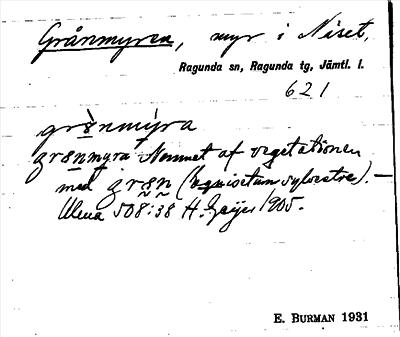 Grånmyren, myr i Niset,
Ragunda sn, Ragunda tg, Jämtl. l.
621
grènmýra
grenmyra Namnet af vegetationen
med gren (Equisetum sylvestre). —
508:38 H. Geijer 1905.
E. BURMAN 1931